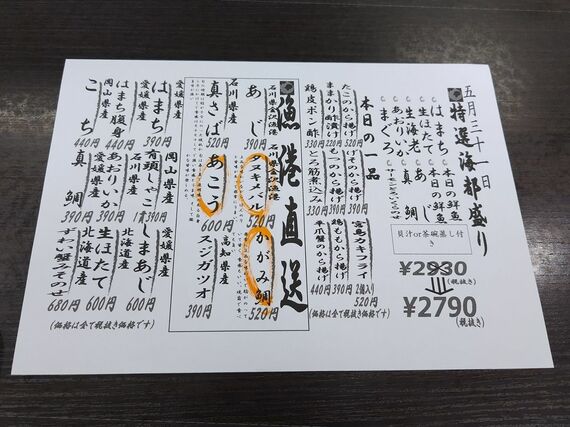 五月三十一日
特選海都盛り
はまち
本日の鮮魚
生ほたて
本日の鮮魚
生海老
あじ
あおりいか
真鯛
まぐろ
貝汁or茶碗蒸し付き
¥2930
(税抜き)
¥2790
(税抜き)
本日の一品
たこのから揚げ
390円
げそのから揚げ
390円
宮島カキフライ
2個入り
520円
ままかり酢漬け
220円
鶏ももから揚げ
390円
鶏皮ポン酢
330円
とろ筋煮込み
330円
平爪蟹のから揚げ
440円
(価格は全て税抜き価格です)
漁港直送
石川県金沢漁港
あじ
390円
石川県金沢漁港
アキメバル
520円
かがみ鯛
520円
石川県産
真さば
520円
あこう
600円
高知県産
スジガツオ
390円
愛媛県産
はまち
390円
岡山県産
有頭しゃこ
1貫390円
愛媛県産
しまあじ
600円
愛媛県産
はまち腹身
440円
石川県産
あおりいか
390円
北海道産
生ほたて
600円
岡山県産
こち
440円
愛媛県産
真鯛
390円
北海道産
ずわい蟹みそのせ
680円
(価格は全て税抜き価格です)